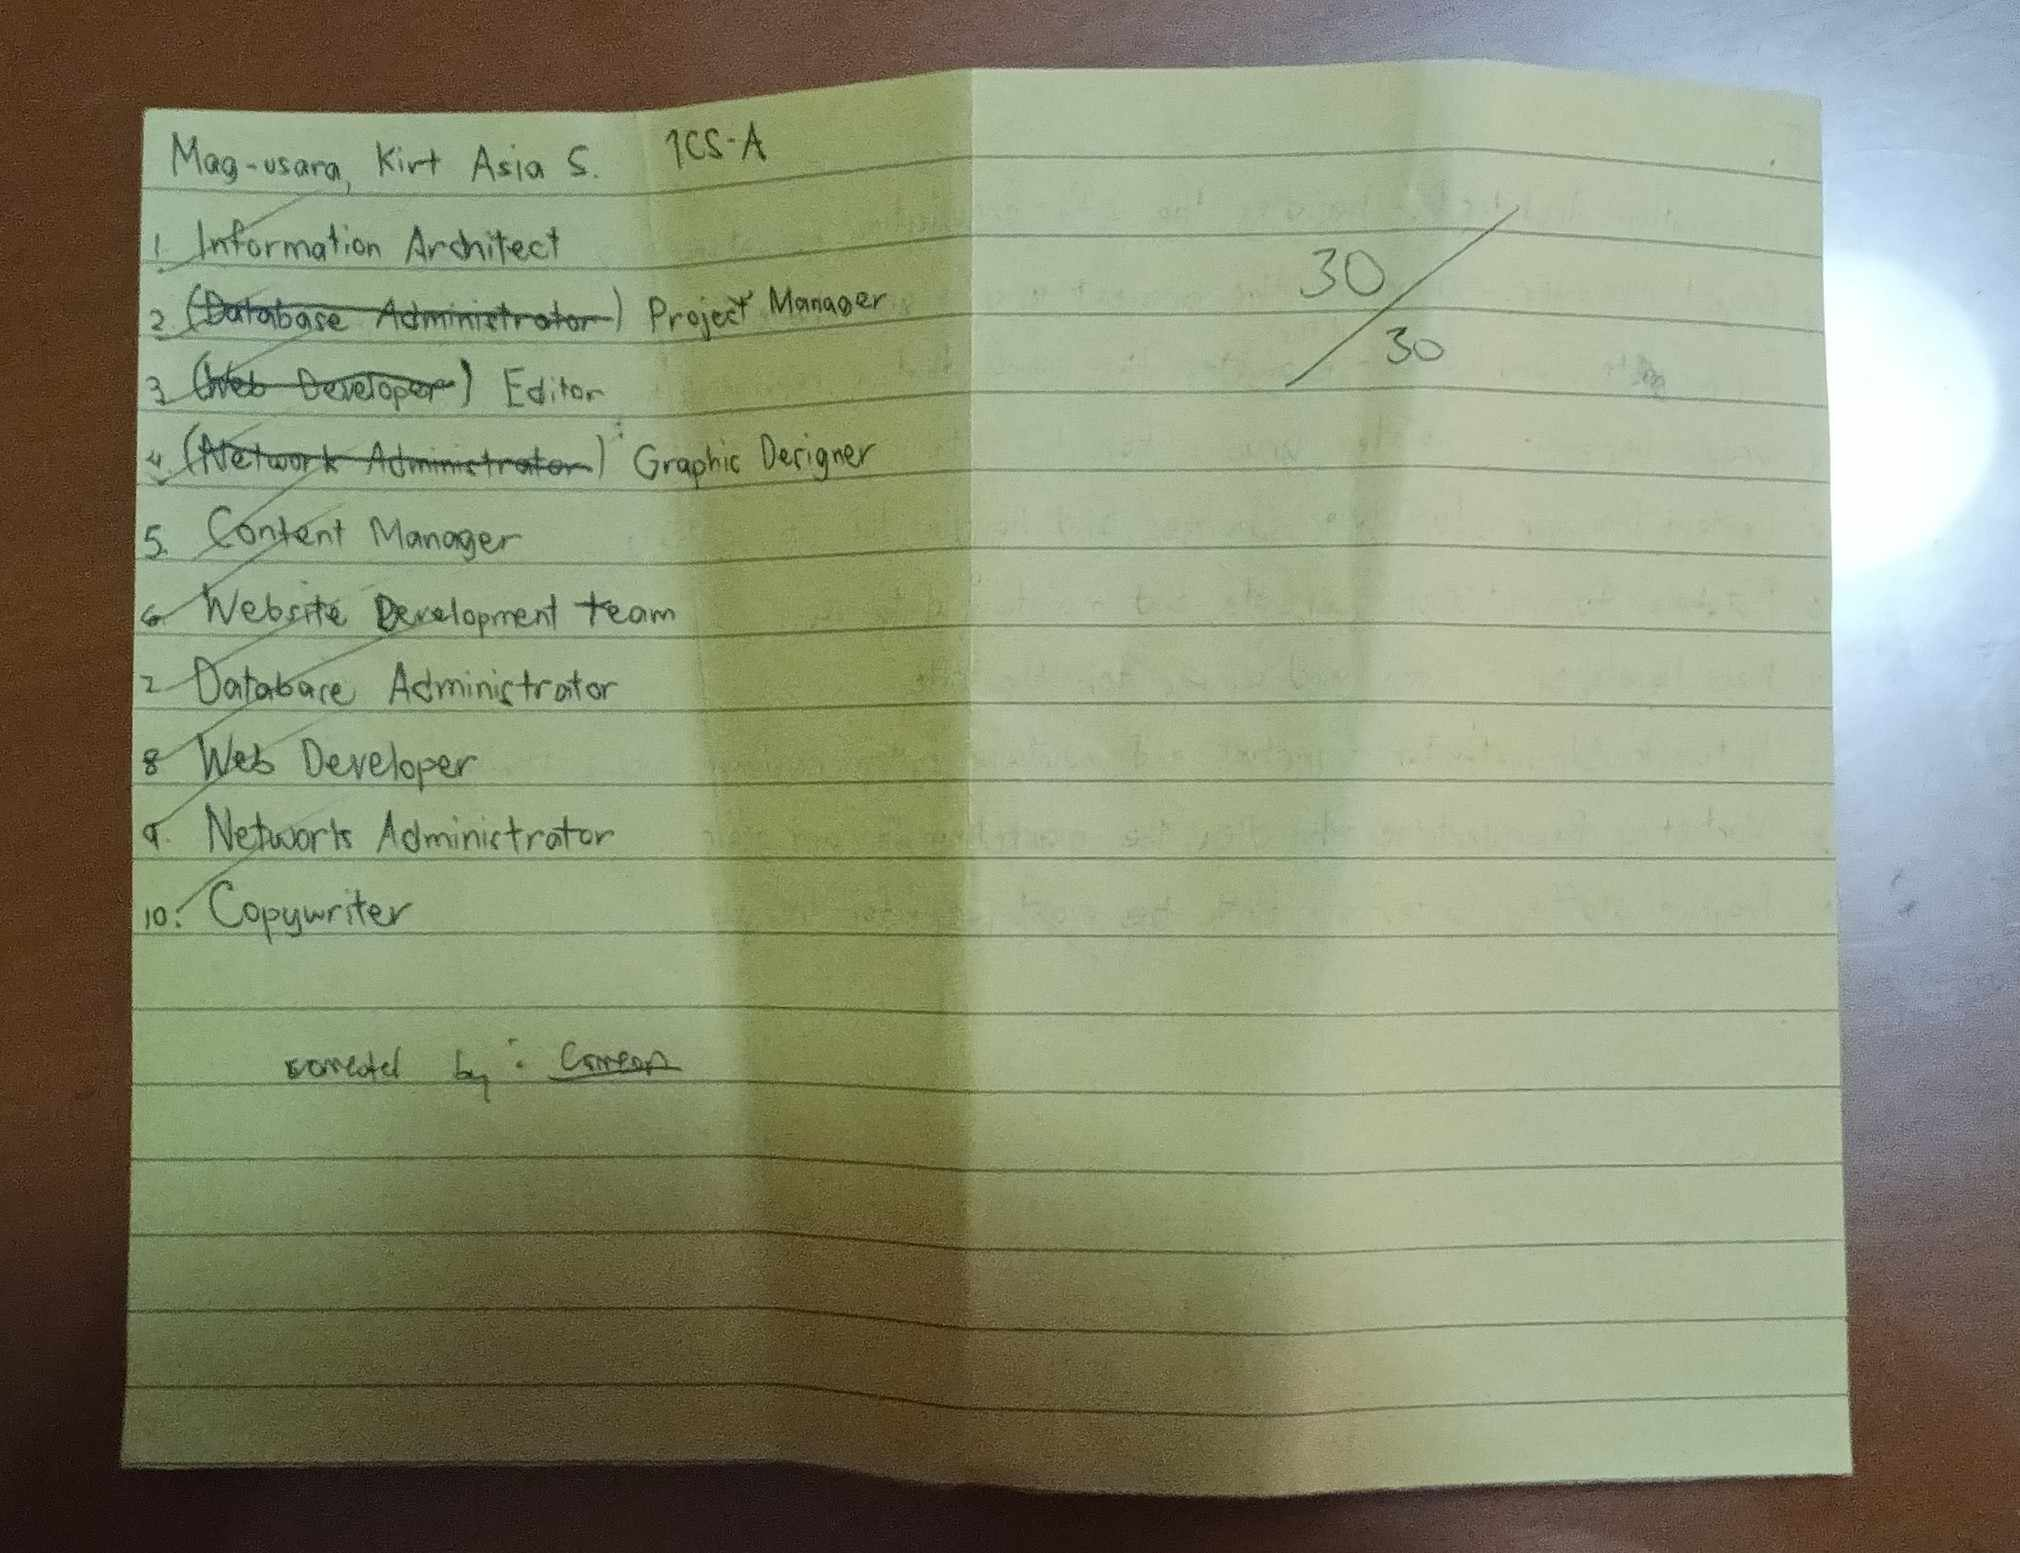 Mag-usara, Kirt Asia S. 1CS-A
1. Information Architect
2. (Database Administrator) Project Manager
3. (Web Developer) Editor
4. (Network Administrator) Graphic Designer
5. Content Manager
6. Website Development team
7. Database Administrator
8 Web Developer
9. Network Administrator
10. Copywriter
30
30
by: